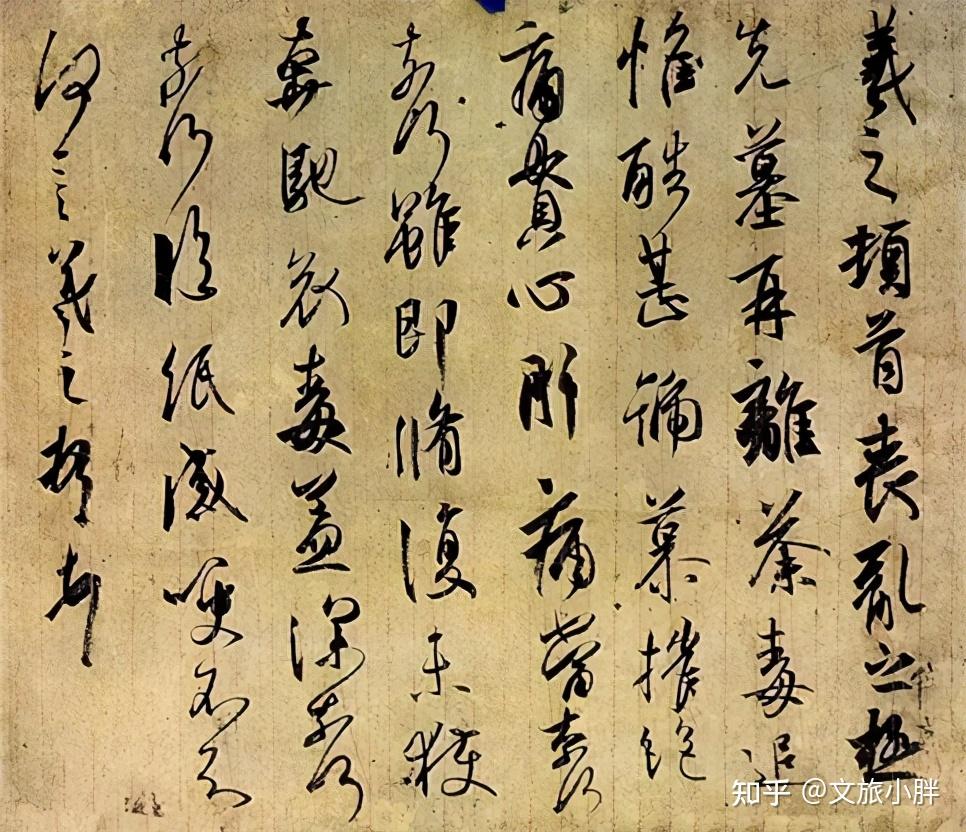 羲之頓首喪亂之極
先墓再離荼毒追
惟酷甚號慕摧絕
痛貫心肝痛當奈何
奈何雖即脩復未獲
奔馳哀毒益深奈何
奈何臨紙感哽不知
何言羲之頓首頓首
知乎 @文旅小胖